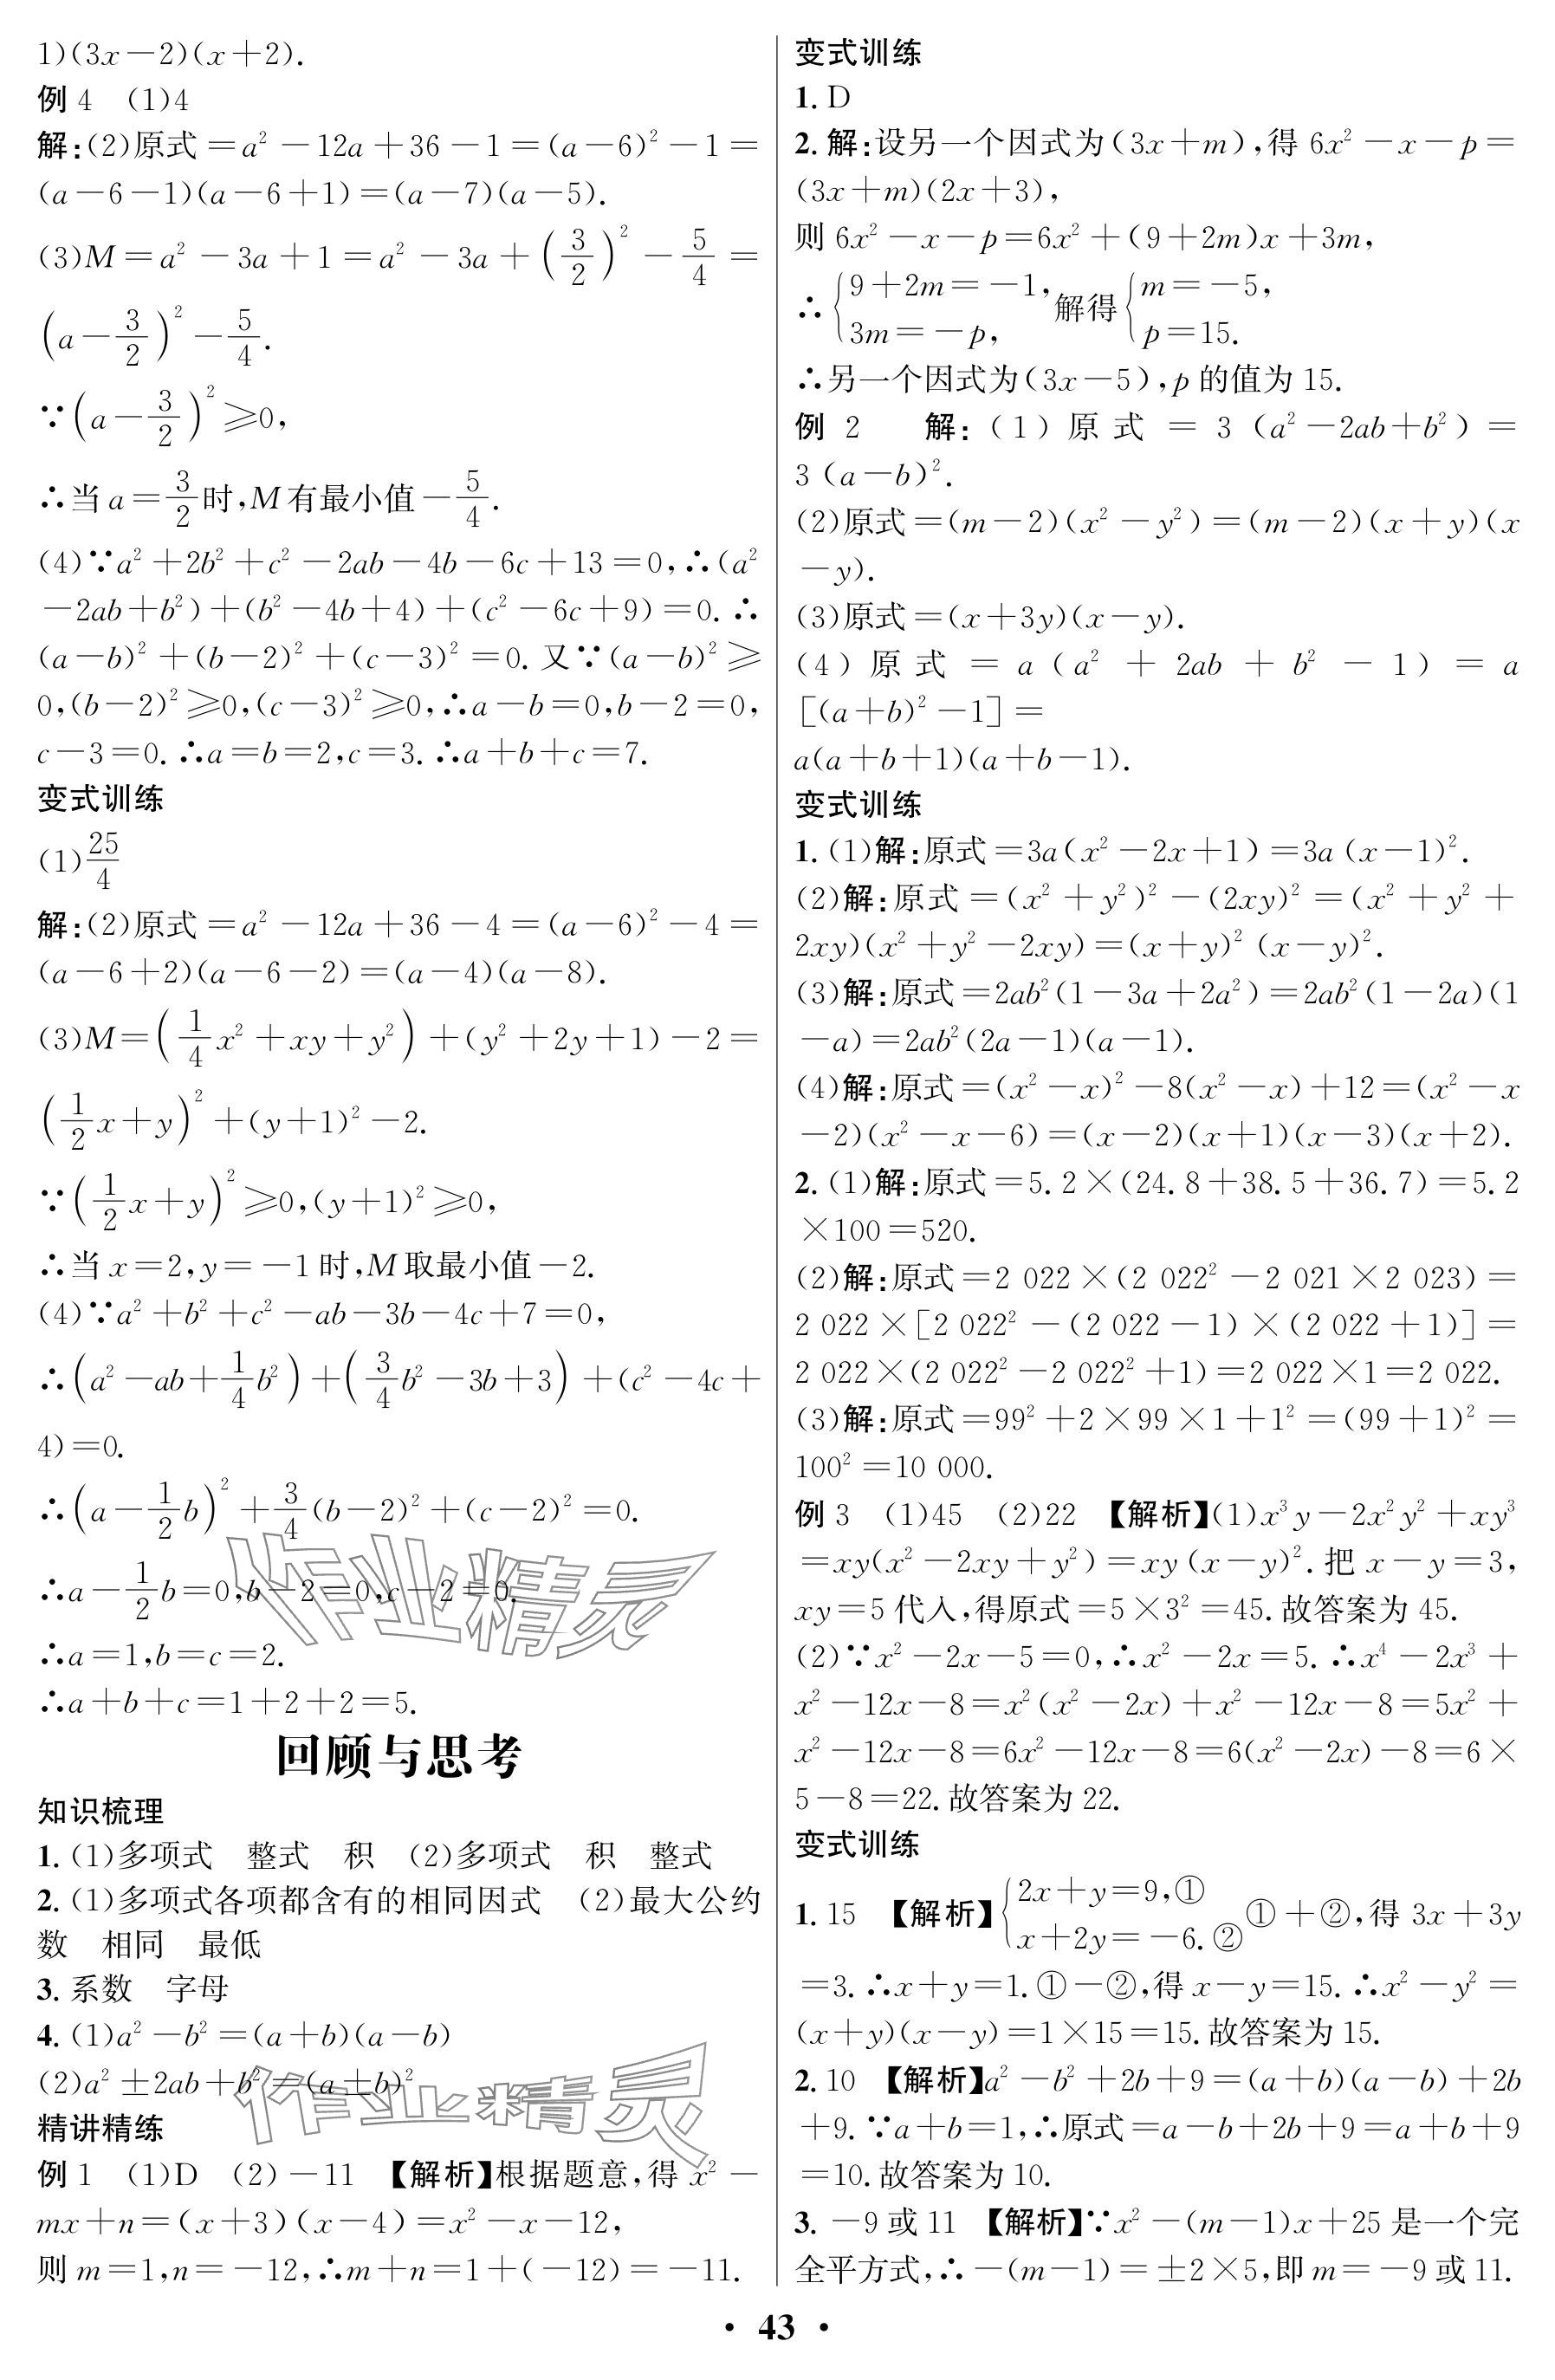 1)(3x－2)(x＋2).
例 4　(1)4
解:(2)原式＝a²－12a＋36－1＝(a－6)²－1＝
(a－6－1)(a－6＋1)＝(a－7)(a－5).
(3)M＝a²－3a＋1＝a²－3a＋(3/2)²－5/4＝
(a－3/2)²－5/4.
∵(a－3/2)²≥0,
∴当 a＝3/2时,M 有最小值－5/4.
(4)∵a²＋2b²＋c²－2ab－4b－6c＋13＝0,∴(a²
－2ab＋b²)＋(b²－4b＋4)＋(c²－6c＋9)＝0.∴
(a－b)²＋(b－2)²＋(c－3)²＝0.又∵(a－b)²≥
0,(b－2)²≥0,(c－3)²≥0,∴a－b＝0,b－2＝0,
c－3＝0.∴a＝b＝2,c＝3.∴a＋b＋c＝7.
变式训练
(1)25/4
解:(2)原式＝a²－12a＋36－4＝(a－6)²－4＝
(a－6＋2)(a－6－2)＝(a－4)(a－8).
(3)M＝(1/4x²＋xy＋y²)＋(y²＋2y＋1)－2＝
(1/2x＋y)²＋(y＋1)²－2.
∵(1/2x＋y)²≥0,(y＋1)²≥0,
∴当 x＝2,y＝－1 时,M 取最小值－2.
(4)∵a²＋b²＋c²－ab－3b－4c＋7＝0,
∴(a²－ab＋1/4b²)＋(3/4b²－3b＋3)＋(c²－4c＋
4)＝0.
∴(a－1/2b)²＋3/4(b－2)²＋(c－2)²＝0.
∴a－1/2b＝0,b－2＝0,c－2＝0.
作业精灵
∴a＝1,b＝c＝2.
∴a＋b＋c＝1＋2＋2＝5.
回顾与思考
知识梳理
1. (1)多项式　整式　积　(2)多项式　积　整式
2. (1)多项式各项都含有的相同因式　(2)最大公约
数　相同　最低
3. 系数　字母
4. (1)a²－b²＝(a＋b)(a－b)
(2)a²±2ab＋b²＝(a±b)²
作业精灵
精讲精练
例 1　(1)D　(2)－11　【解析】根据题意,得 x²－
mx＋n＝(x＋3)(x－4)＝x²－x－12,
则 m＝1,n＝－12,∴m＋n＝1＋(－12)＝－11.
变式训练
1. D
2. 解:设另一个因式为(3x＋m),得 6x²－x－p＝
(3x＋m)(2x＋3),
则 6x²－x－p＝6x²＋(9＋2m)x＋3m,
∴{9＋2m＝－1, 3m＝－p, 解得{m＝－5, p＝15.
∴另一个因式为(3x－5),p 的值为 15.
例 2　解:(1)原式＝3(a²－2ab＋b²)＝
3(a－b)².
(2)原式＝(m－2)(x²－y²)＝(m－2)(x＋y)(x
－y).
(3)原式＝(x＋3y)(x－y).
(4)原式＝a(a²＋2ab＋b²－1)＝a
[(a＋b)²－1]＝
a(a＋b＋1)(a＋b－1).
变式训练
1. (1)解:原式＝3a(x²－2x＋1)＝3a(x－1)².
(2)解:原式＝(x²＋y²)²－(2xy)²＝(x²＋y²＋
2xy)(x²＋y²－2xy)＝(x＋y)²(x－y)².
(3)解:原式＝2ab²(1－3a＋2a²)＝2ab²(1－2a)(1
－a)＝2ab²(2a－1)(a－1).
(4)解:原式＝(x²－x)²－8(x²－x)＋12＝(x²－x
－2)(x²－x－6)＝(x－2)(x＋1)(x－3)(x＋2).
2. (1)解:原式＝5.2×(24.8＋38.5＋36.7)＝5.2
×100＝520.
(2)解:原式＝2 022×(2 022²－2 021×2 023)＝
2 022×[2 022²－(2 022－1)×(2 022＋1)]＝
2 022×(2 022²－2 022²＋1)＝2 022×1＝2 022.
(3)解:原式＝99²＋2×99×1＋1²＝(99＋1)²＝
100²＝10 000.
例 3　(1)45　(2)22　【解析】(1)x³y－2x²y²＋xy³
＝xy(x²－2xy＋y²)＝xy(x－y)².把 x－y＝3,
xy＝5 代入,得原式＝5×3²＝45.故答案为 45.
(2)∵x²－2x－5＝0,∴x²－2x＝5.∴x⁴－2x³＋
x²－12x－8＝x²(x²－2x)＋x²－12x－8＝5x²＋
x²－12x－8＝6x²－12x－8＝6(x²－2x)－8＝6×
5－8＝22.故答案为 22.
变式训练
1. 15　【解析】{2x＋y＝9,① x＋2y＝－6.② ①＋②,得 3x＋3y
＝3.∴x＋y＝1.①－②,得 x－y＝15.∴x²－y²＝
(x＋y)(x－y)＝1×15＝15.故答案为 15.
2. 10　【解析】a²－b²＋2b＋9＝(a＋b)(a－b)＋2b
＋9.∵a＋b＝1,∴原式＝a－b＋2b＋9＝a＋b＋9
＝10.故答案为 10.
3. －9 或 11　【解析】∵x²－(m－1)x＋25 是一个完
全平方式,∴－(m－1)＝±2×5,即 m＝－9 或 11.
· 43 ·